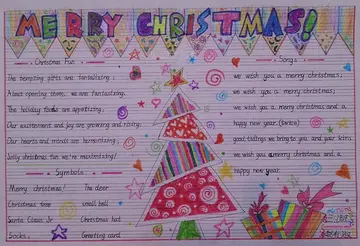 MERRY CHRISTMAS!
Christmas Fun
The tempting gifts are tantalising;
About opening them, we are fantasizing.
The holiday foods are appetizing,
Our excitement and joy are growing and rising;
Our hearts and minds are harmonizing,
Jolly christmas fun we're maximizing!
Symbols
Merry christmas! The deer
Christmas tree
Santa Claus Christmas hat
Socks Greeting card
Songs
we wish you a merry christmas;
we wish you a merry christmas;
we wish you a merry christmas and a
happy new year. (twice)
good tidings we bring to you and your kin;
we wish you a merry christmas and a
happy new year.